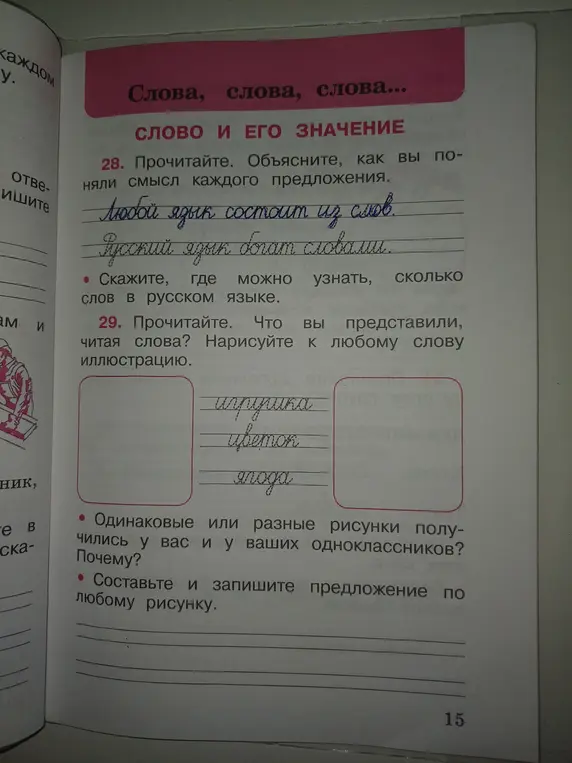 каждом
у.
отве-
пишите
ам и
ник,
е в
ска-
Слова, слова, слова...
СЛОВО И ЕГО ЗНАЧЕНИЕ
28. Прочитайте. Объясните, как вы по-
няли смысл каждого предложения.
Любой язык состоит из слов.
Русский язык богат словами.
• Скажите, где можно узнать, сколько
слов в русском языке.
29. Прочитайте. Что вы представили,
читая слова? Нарисуйте к любому слову
иллюстрацию.
игрушка
цветок
ягода
• Одинаковые или разные рисунки полу-
чились у вас и у ваших одноклассников?
Почему?
• Составьте и запишите предложение по
любому рисунку.
15